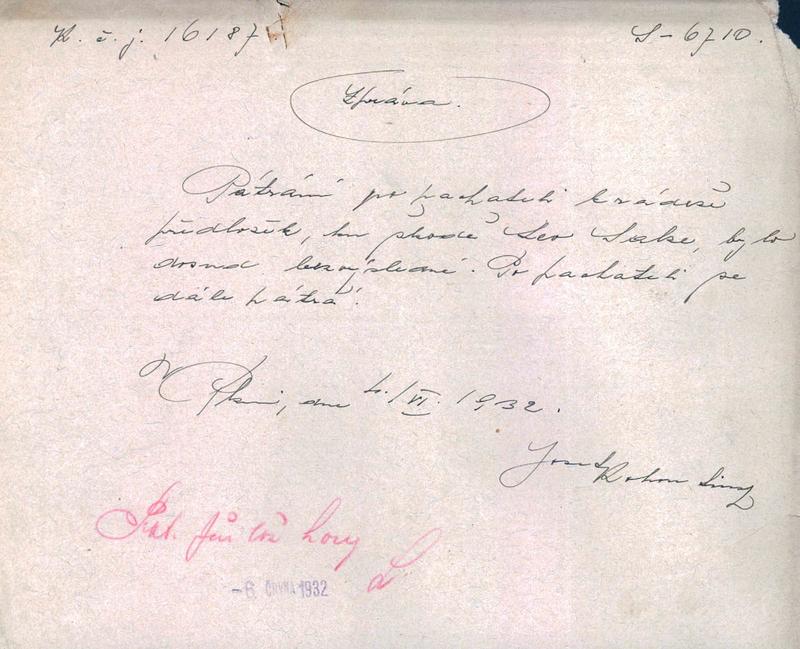 K. č. j. 16187
S-6710.
Zpráva.
Pátrání po pachateli krádeže
předložek, ku škodě Leo Sakse, bylo
dosud bezvýsledné. Po pachateli se
dále pátrá.
V Plzni, dne 4./VI. 1932.
Josef
-6. ČERVNA 1932